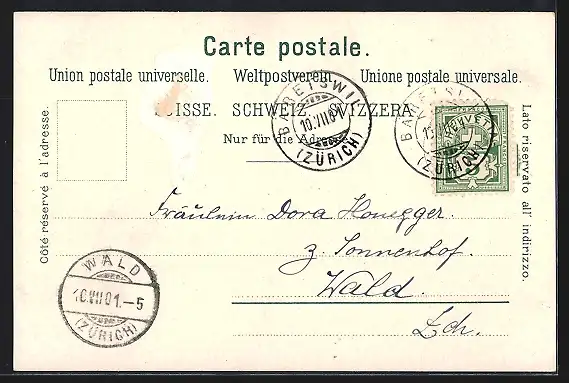 Carte postale.
Union postale universelle. Weltpostverein. Unione postale universale.
SUISSE. SCHWEIZ. SVIZZERA.
Nur für die Adresse.
Côté réservé à l'adresse.
Lato riservato all' indirizzo.
BÄRETSWIL
10.VII.01
(ZÜRICH)
BÄRETSWIL
(ZÜRICH)
HELVETIA
5
Fräulein Dora Honegger.
z. Sonnenhof.
Wald.
Zch.
WALD
10.VII.01.–5
(ZÜRICH)